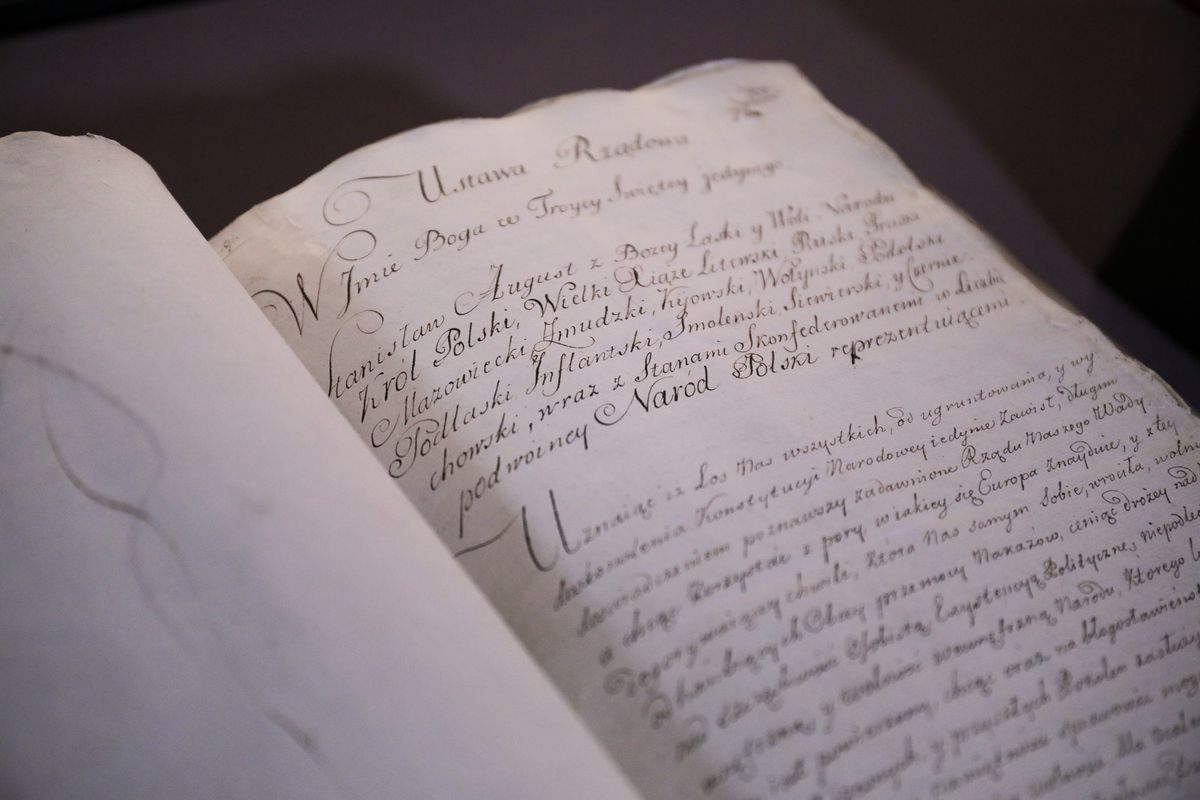 Ustawa Rządowa
W Jmie Boga w Troycy Swiętey jedynego
Stanisław August z Bozey Łaski y Woli Narodu
Król Polski, Wielki Xiąze Litewski, Ruski, Pruski
Mazowiecki, Zmudzki, Kijowski, Wołynski, Podolski
Podlaski Jnflantski, Smolenski, Siewierski, y Czernie
chowski, wraz z Stanami Skonfederowanemi w Liczbie
podwoiney Naród Polski reprezentuiącemi
Uznaiąc iz Los Nas wszystkich, od ugruntowania, y wy
doskonalenia Konstytucyi Narodowey iedynie zawisł, długim
doswiadczeniem poznawszy zadawnione Rządu Naszego Wady
a chcąc korzystać z pory, w iakiey się Europa znayduie, y z tey
dogorywaiącey chwili, która Nas samym Sobie, wrociła, wolni
od hanbiących Obcey przemocy Nakazów, ceniąc drożey nad
Exystencyą Polityczną, niepodle
zewnętrzną Narodu, ktorego
iest powierzony, chcąc oraz na błogosławieństwo
y przyszłych Pokolen